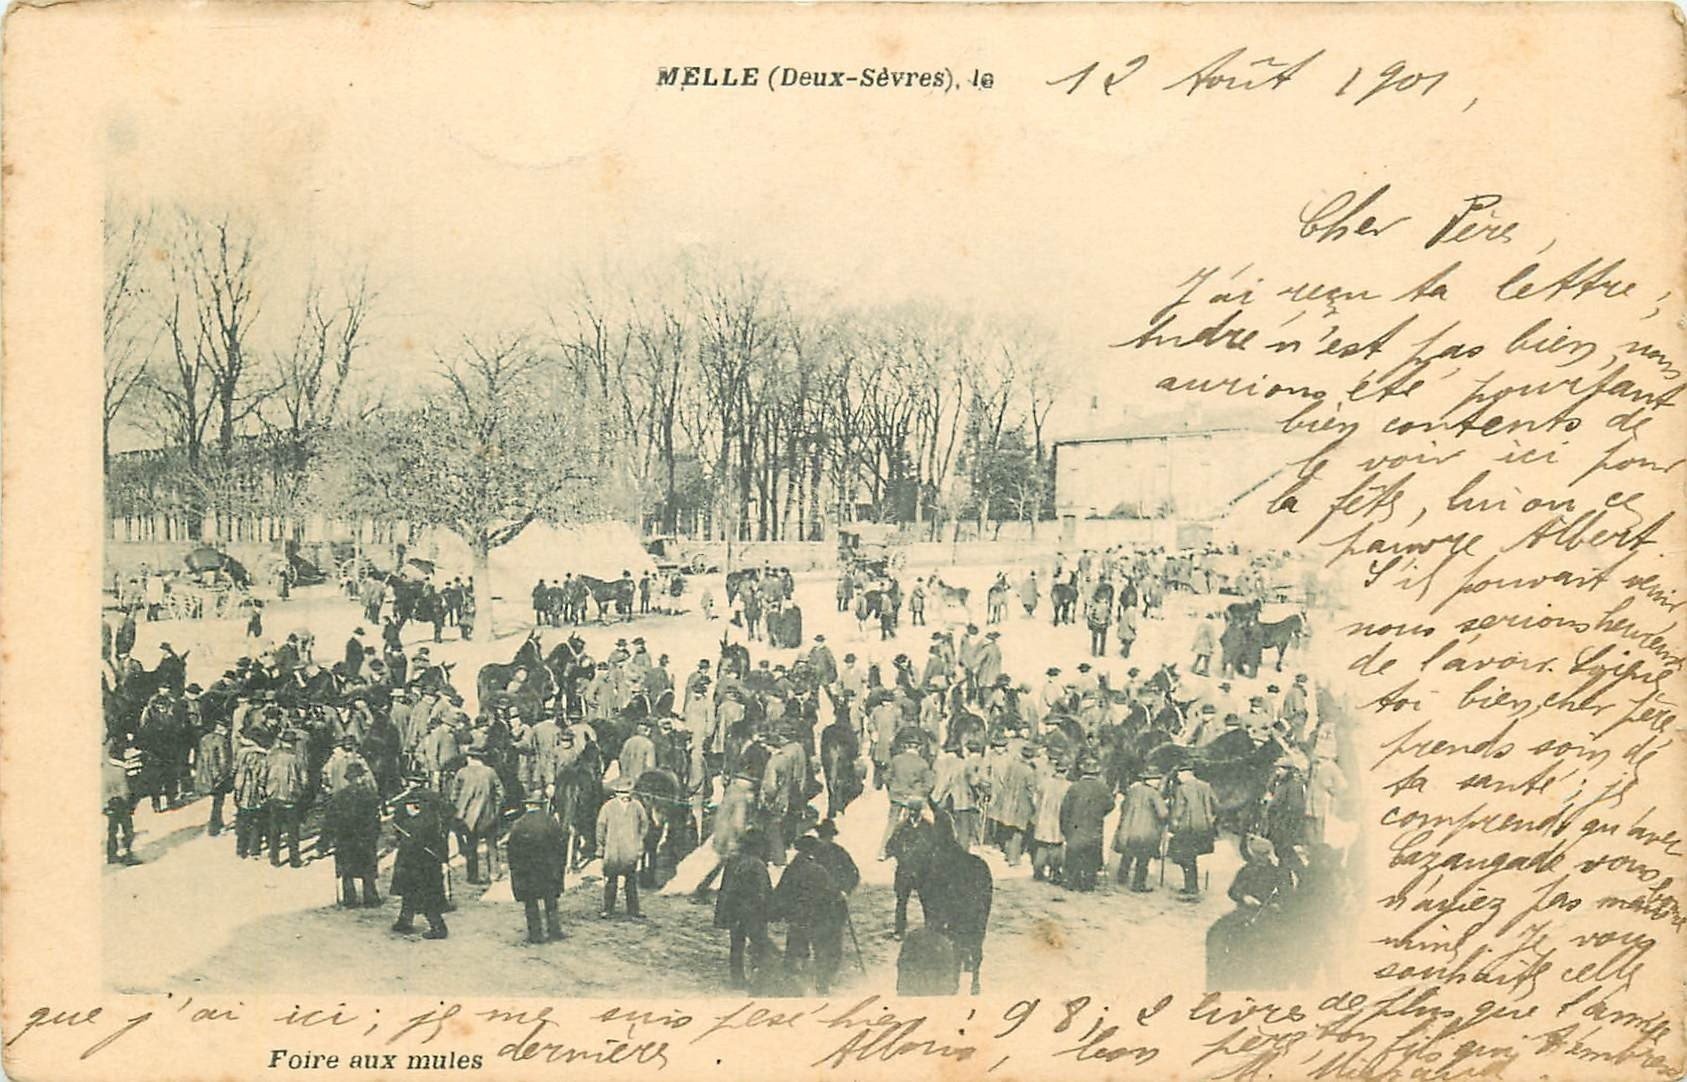 MELLE (Deux-Sèvres), le 12 Août 1901,
Cher Père,
J'ai reçu ta lettre,
André n'est pas bien, nous
aurions été pourtant
bien contents de
le voir ici pour
la fête, lui ou ce
pauvre Albert.
S'il pouvait venir
nous serions heureux
de l'avoir. Soigne
toi bien, cher père,
prends soin de
ta santé ; je
comprends qu'avec
vous
n'ayiez pas bonne
mine. Je vous
souhaite celle
que j'ai ici ; je me suis pesé hier : 98 ; 2 livres de plus que l'année
dernière. Allons, bon père, ton fils qui t'embrasse
Foire aux mules
M.